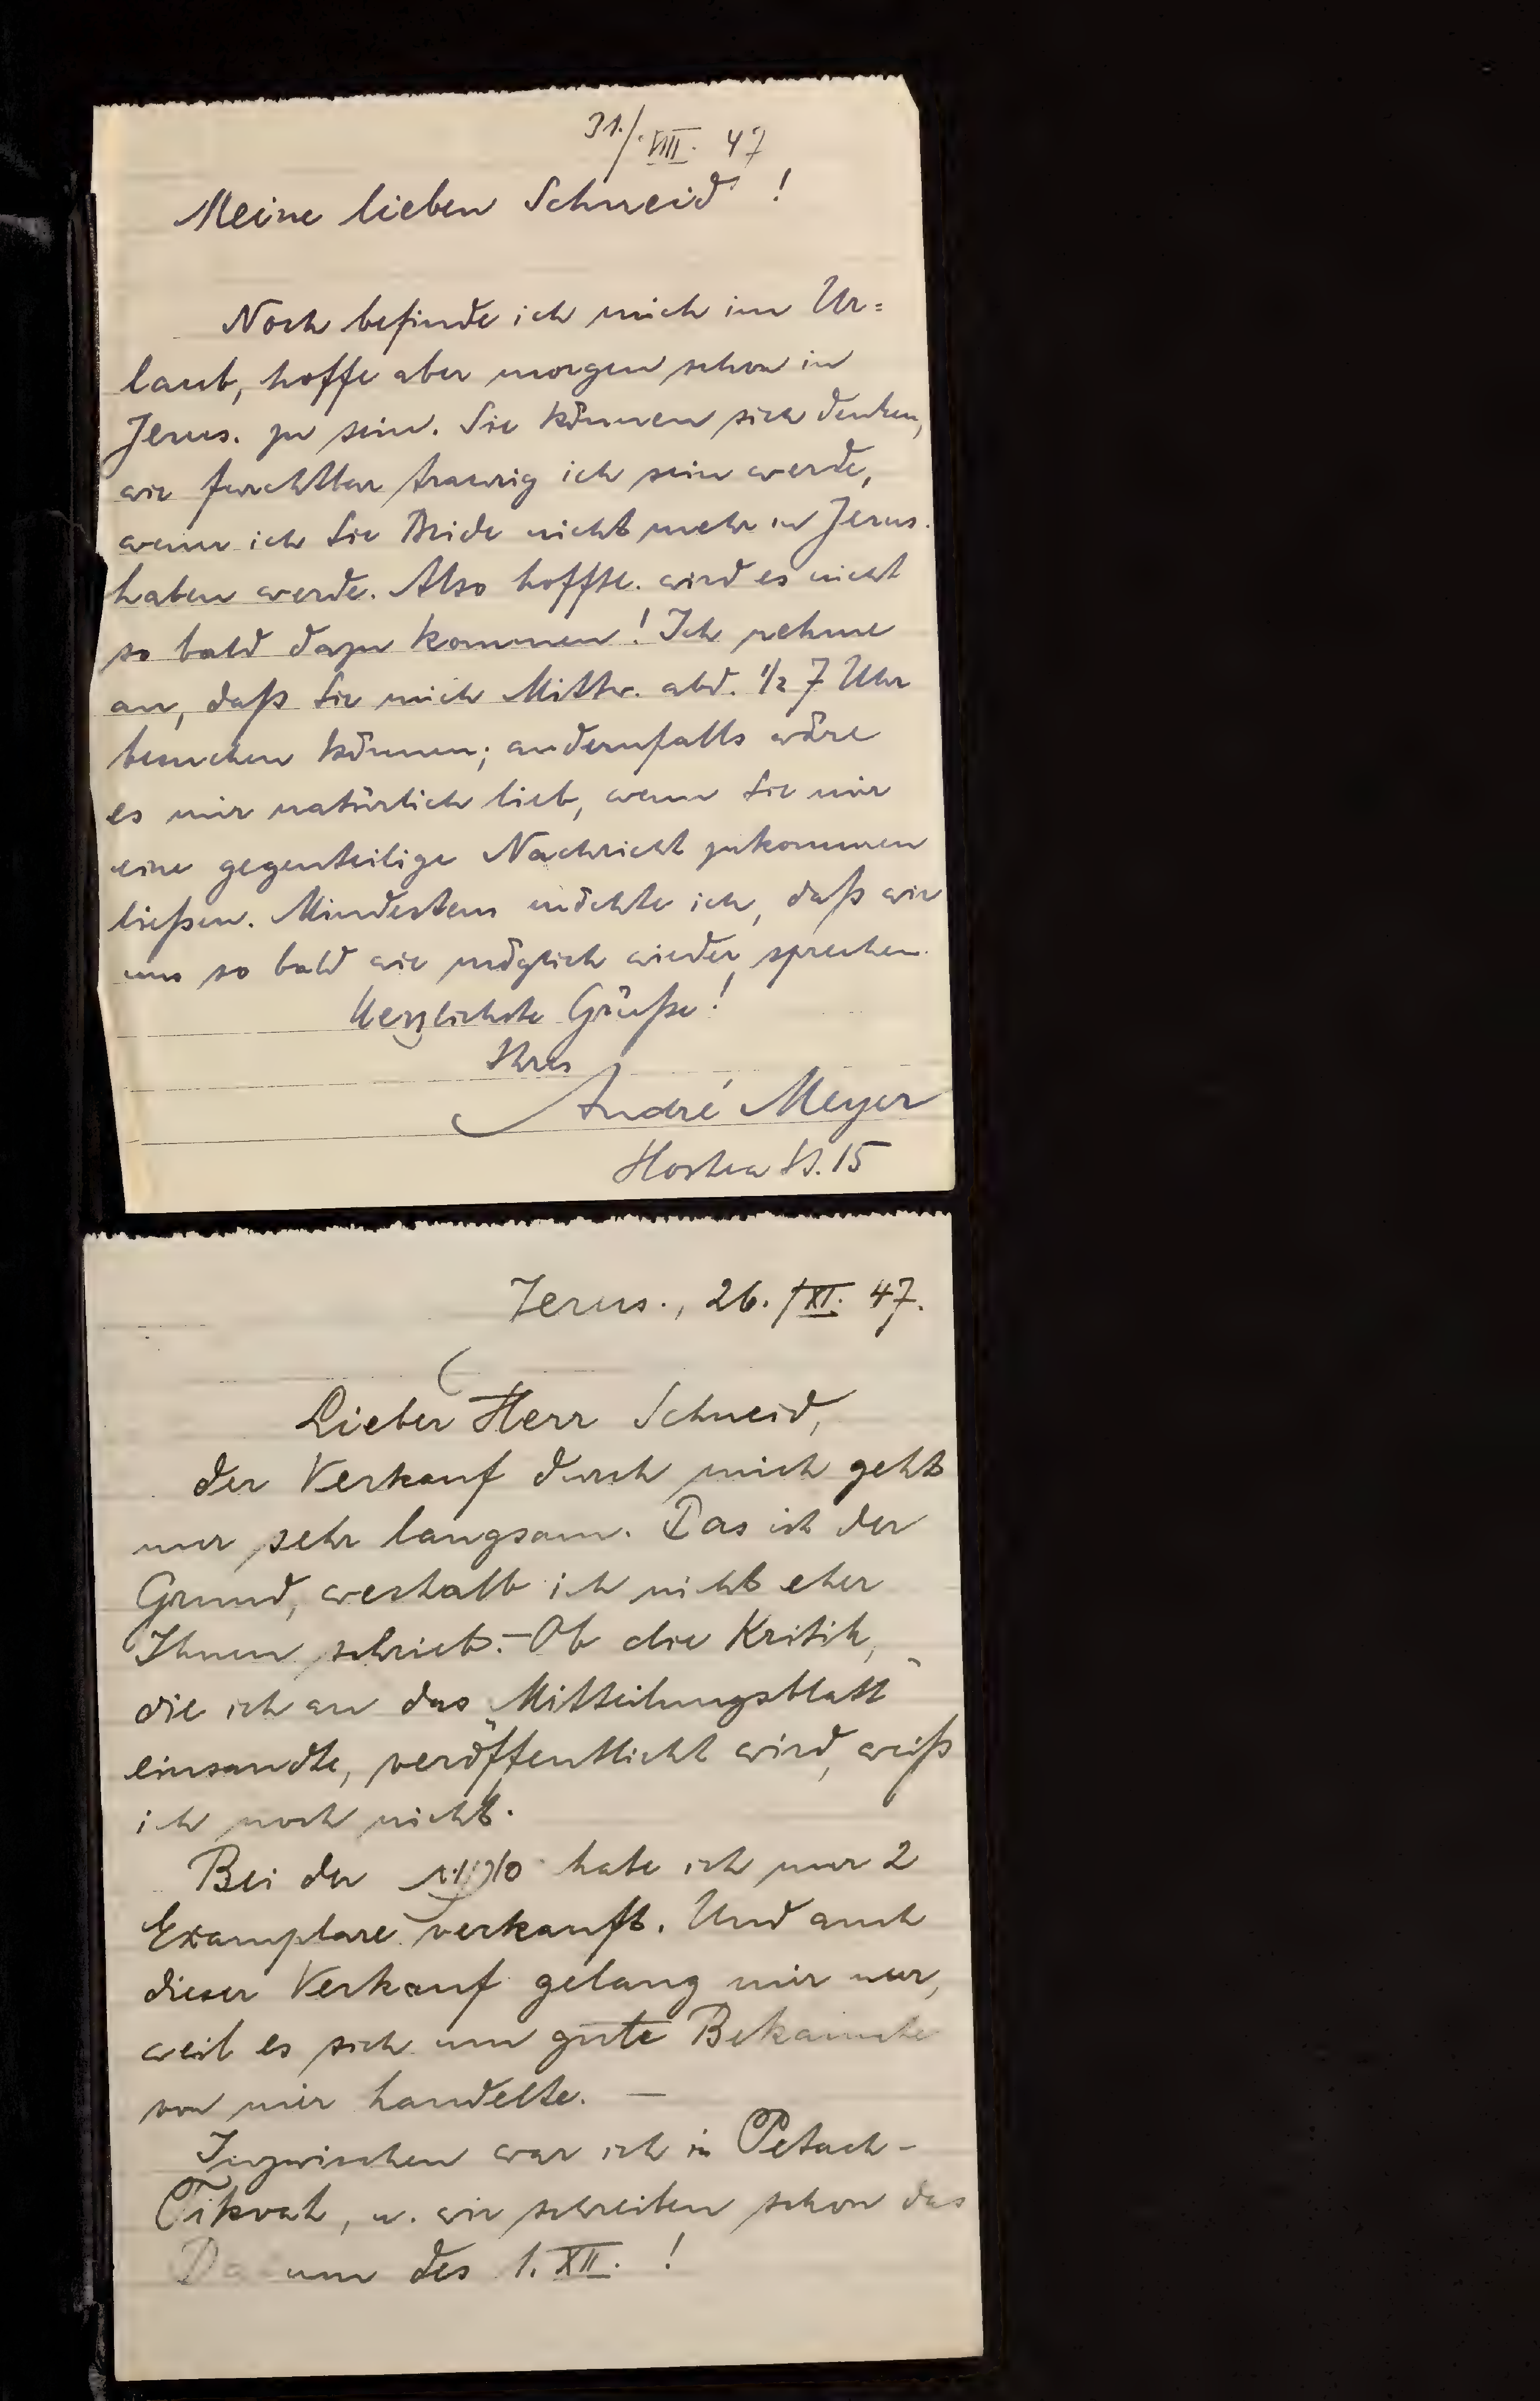 31./VIII. 47
Meine lieben Schneid!
Noch befinde ich mich im Ur=
laub, hoffe aber morgen schon in
Jerus. zu sein. Sie können sich denken,
wie furchtbar traurig ich sein werde,
wenn ich Sie Beide nicht mehr in Jerus.
haben werde. Also hofftl. wird es nicht
so bald dazu kommen! Ich nehme
an, daß Sie mich Mittw. abd. 1/2 7 Uhr
besuchen können; andernfalls wäre
es mir natürlich lieb, wenn Sie mir
eine gegenteilige Nachricht zukommen
ließen. Mindestens möchte ich, daß wir
uns so bald wie möglich wieder sprechen.
Herzlichste Grüße!
Ihres
André Meyer
St. 15
Jerus., 26./XI. 47.
Lieber Herr Schneid,
der Verkauf durch mich geht
nur sehr langsam. Das ist der
Grund, weshalb ich nicht eher
Ihnen schrieb. – Ob die Kritik,
die ich an das „Mitteilungsblatt"
einsandte, veröffentlicht wird, weiß
ich noch nicht.
Bei der habe ich nur 2
Exemplare verkauft. Und auch
dieser Verkauf gelang mir nur,
weil es sich um gute Bekannte
von mir handelte. —
Inzwischen war ich in Petach-
Tikvah, u. wir schreiben schon das
Datum des 1. XII. !